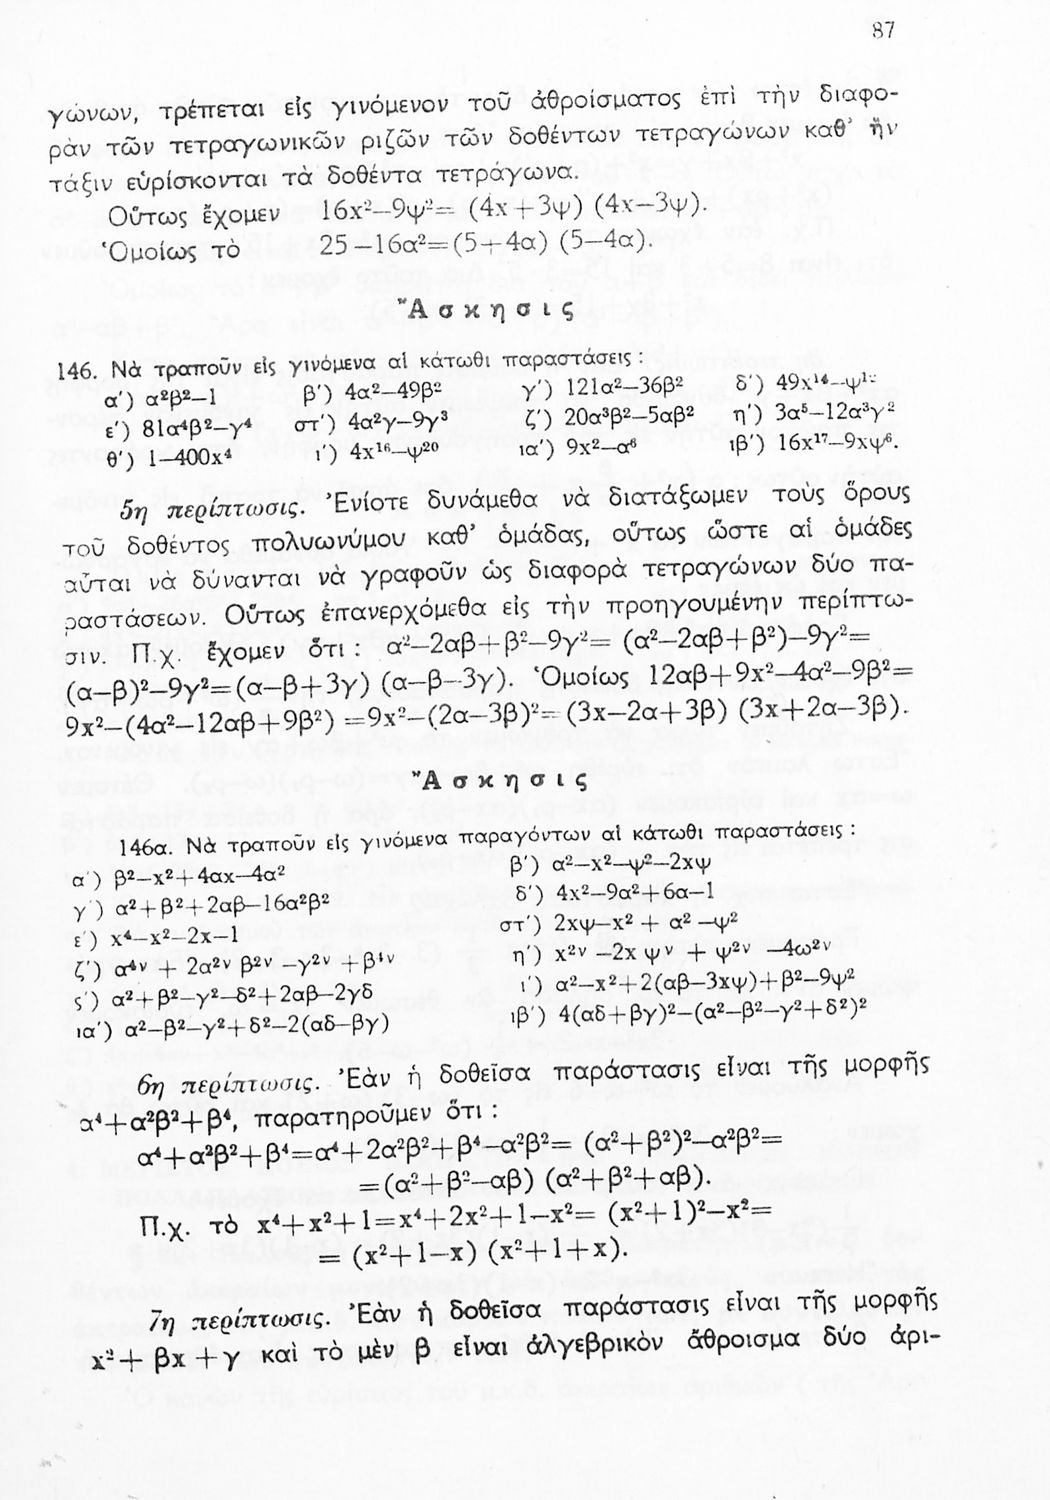 87
γώνων, τρέπεται εἰς γινόμενον τοῦ ἀθροίσματος ἐπὶ τὴν διαφο-
ρὰν τῶν τετραγωνικῶν ριζῶν τῶν δοθέντων τετραγώνων καθ' ἣν
τάξιν εὑρίσκονται τὰ δοθέντα τετράγωνα.
Οὕτως ἔχομεν 16x²—9ψ²= (4x+3ψ) (4x—3ψ).
Ὁμοίως τὸ 25—16α²=(5+4α) (5—4α).
Ἄσκησις
146. Νὰ τραποῦν εἰς γινόμενα αἱ κάτωθι παραστάσεις :
α') α²β²—1 β') 4α²—49β² γ') 121α²—36β² δ') 49x¹⁴—ψ¹²
ε') 81α⁴β²—γ⁴ στ') 4α²γ—9γ³ ζ') 20α³β²—5αβ² η') 3α⁵—12α³γ²
θ') 1—400x⁴ ι') 4x¹⁶—ψ²⁰ ια') 9x²—α⁶ ιβ') 16x¹⁷—9xψ⁶.
5η περίπτωσις. Ἐνίοτε δυνάμεθα νὰ διατάξωμεν τοὺς ὅρους
τοῦ δοθέντος πολυωνύμου καθ' ὁμάδας, οὕτως ὥστε αἱ ὁμάδες
αὗται νὰ δύνανται νὰ γραφοῦν ὡς διαφορὰ τετραγώνων δύο πα-
ραστάσεων. Οὕτως ἐπανερχόμεθα εἰς τὴν προηγουμένην περίπτω-
σιν. Π.χ. ἔχομεν ὅτι : α²—2αβ+β²—9γ²= (α²—2αβ+β²)—9γ²=
(α—β)²—9γ²=(α—β+3γ) (α—β—3γ). Ὁμοίως 12αβ+9x²—4α²—9β²=
9x²—(4α²—12αβ+9β²) =9x²—(2α—3β)²= (3x—2α+3β) (3x+2α—3β).
Ἄσκησις
146α. Νὰ τραποῦν εἰς γινόμενα παραγόντων αἱ κάτωθι παραστάσεις :
α') β²—x²+4αx—4α² β') α²—x²—ψ²—2xψ
γ') α²+β²+2αβ—16α²β² δ') 4x²—9α²+6α—1
ε') x⁴—x²—2x—1 στ') 2xψ—x² + α² —ψ²
ζ') α⁴ᵛ + 2α²ᵛ β²ᵛ —γ²ᵛ +β⁴ᵛ η') x²ᵛ —2x ψᵛ + ψ²ᵛ —4ω²ᵛ
ς') α²+β²—γ²—δ²+2αβ—2γδ ι') α²—x²+2(αβ—3xψ)+β²—9ψ²
ια') α²—β²—γ²+δ²—2(αδ—βγ) ιβ') 4(αδ+βγ)²—(α²—β²—γ²+δ²)²
6η περίπτωσις. Ἐὰν ἡ δοθεῖσα παράστασις εἶναι τῆς μορφῆς
α⁴+α²β²+β⁴, παρατηροῦμεν ὅτι :
α⁴+α²β²+β⁴=α⁴+2α²β²+β⁴—α²β²= (α²+β²)²—α²β²=
=(α²+β²—αβ) (α²+β²+αβ).
Π.χ. τὸ x⁴+x²+1=x⁴+2x²+1—x²= (x²+1)²—x²=
= (x²+1—x) (x²+1+x).
7η περίπτωσις. Ἐὰν ἡ δοθεῖσα παράστασις εἶναι τῆς μορφῆς
x²+ βx +γ καὶ τὸ μὲν β εἶναι ἀλγεβρικὸν ἄθροισμα δύο ἀρι-